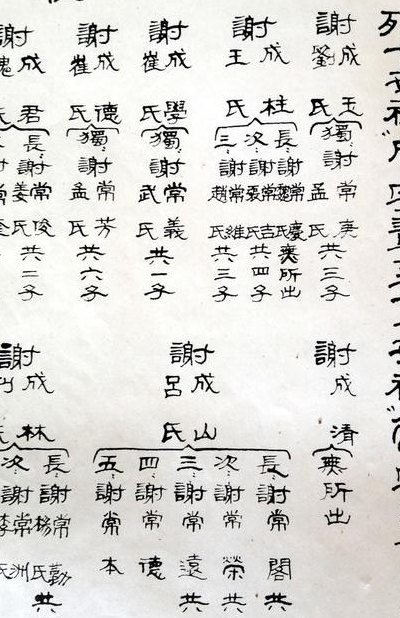 謝成玉
劉氏
獨謝常庚
孟氏
共三子
謝成柱
王氏
長謝常慶
氏
無所出
次謝常吉
氏
共四子
三謝常維
趙氏
共三子
謝成學
崔氏
獨謝常義
武氏
共一子
謝成德
崔氏
獨謝常芳
孟氏
共六子
謝成君
氏
長謝常俊
姜氏
共二子
謝成清
無所出
謝成山
呂氏
長謝常閣
共
次謝常榮
共
三謝常遠
共
四謝常德
五謝常本
謝成林
氏
長謝常勤
楊氏
共
次謝常洲
李氏